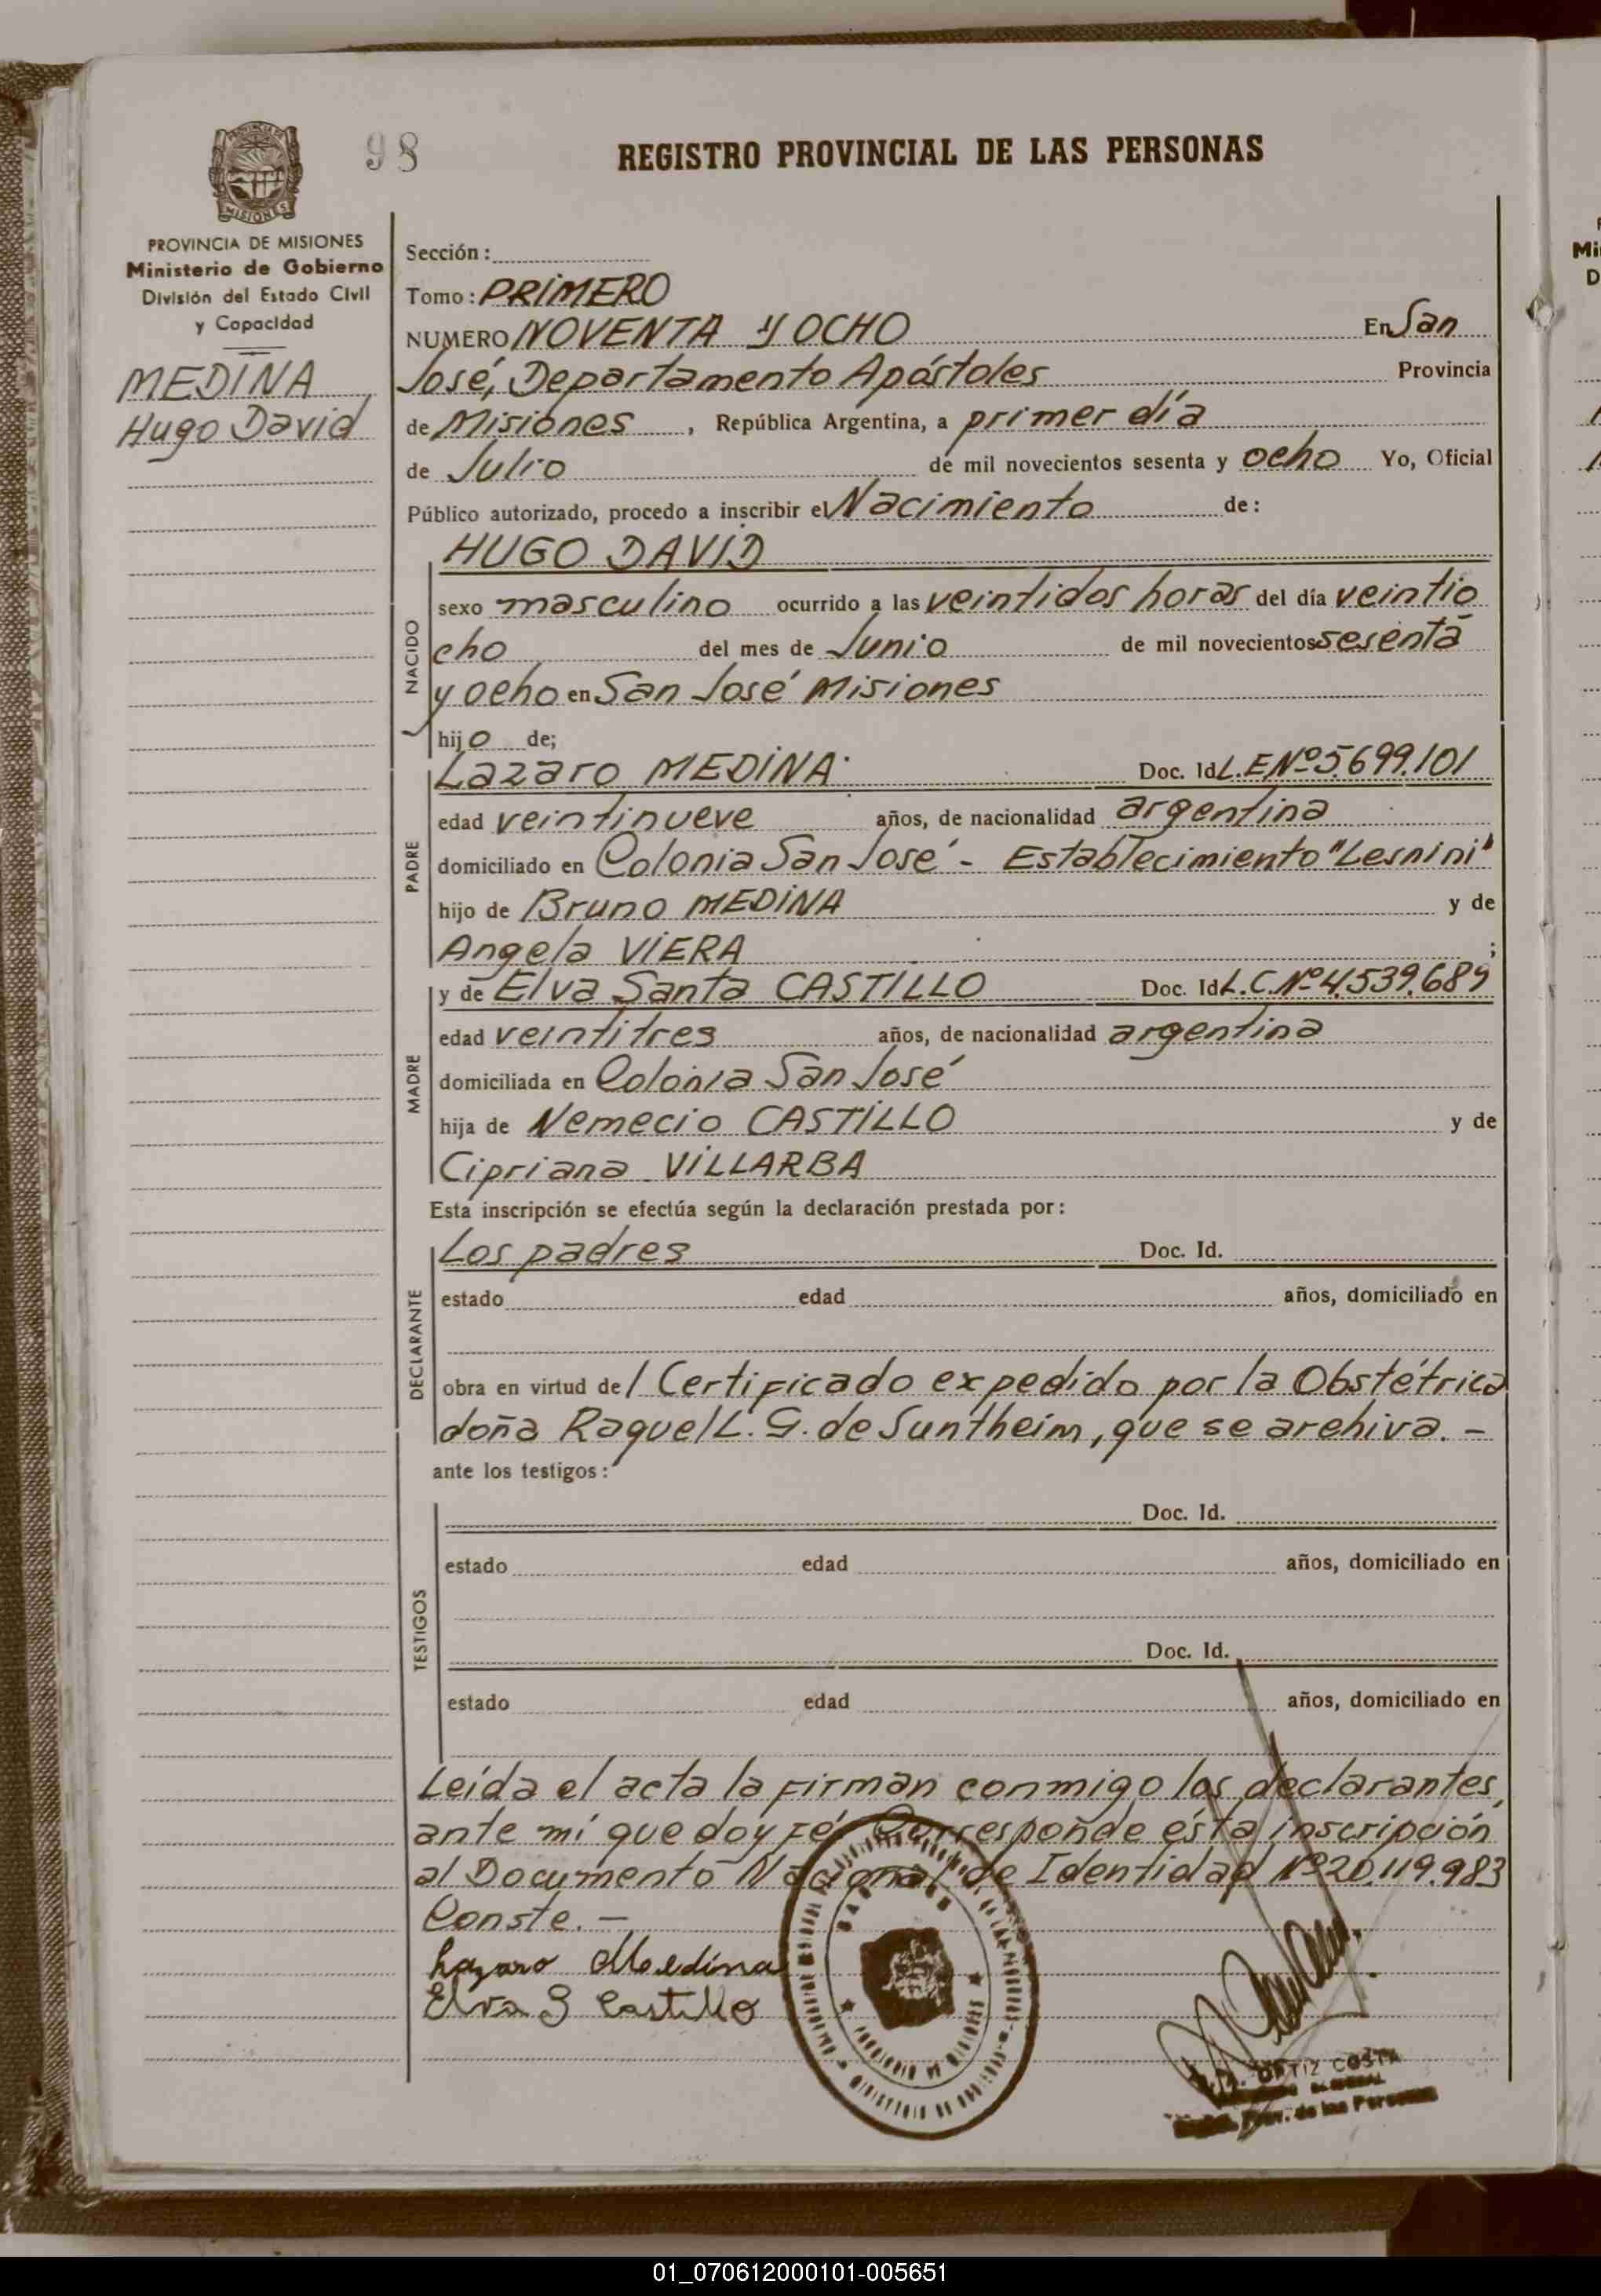 98
REGISTRO PROVINCIAL DE LAS PERSONAS
MISIONES
PROVINCIA DE MISIONES
Ministerio de Gobierno
División del Estado Civil
y Capacidad
MEDINA
Hugo David
Sección:
Tomo: PRIMERO
NUMERO NOVENTA Y OCHO En San
José, Departamento Apóstoles Provincia
de Misiones, República Argentina, a primer día
de Julio de mil novecientos sesenta y ocho Yo, Oficial
Público autorizado, procedo a inscribir el Nacimiento de:
NACIDO
HUGO DAVID
sexo masculino ocurrido a las veintidos horas del día veintio
cho del mes de Junio de mil novecientos sesenta
y ocho en San José Misiones
hijo de;
PADRE
Lazaro MEDINA Doc. Id L.E Nº 5.699.101
edad veintinueve años, de nacionalidad argentina
domiciliado en Colonia San José - Establecimiento "Lesnini"
hijo de Bruno MEDINA y de
Angela VIERA ;
MADRE
y de Elva Santa CASTILLO Doc. Id L.C. Nº 4.539.689
edad veintitres años, de nacionalidad argentina
domiciliada en Colonia San José
hija de Nemecio CASTILLO y de
Cipriana VILLARBA
Esta inscripción se efectúa según la declaración prestada por:
DECLARANTE
Los padres Doc. Id.
estado edad años, domiciliado en
obra en virtud del Certificado expedido por la Obstétrica
doña Raquel L. G. de Suntheim, que se archiva. -
ante los testigos:
TESTIGOS
Doc. Id.
estado edad años, domiciliado en
Doc. Id.
estado edad años, domiciliado en
Leída el acta la firman conmigo los declarantes,
ante mí que doy fé. Corresponde ésta inscripción
al Documento Nacional de Identidad Nº 20.119.983
Conste. -
Lazaro Medina
Elva S Castillo
ORTIZ COSTA
Prov. de las Personas
01_070612000101-005651